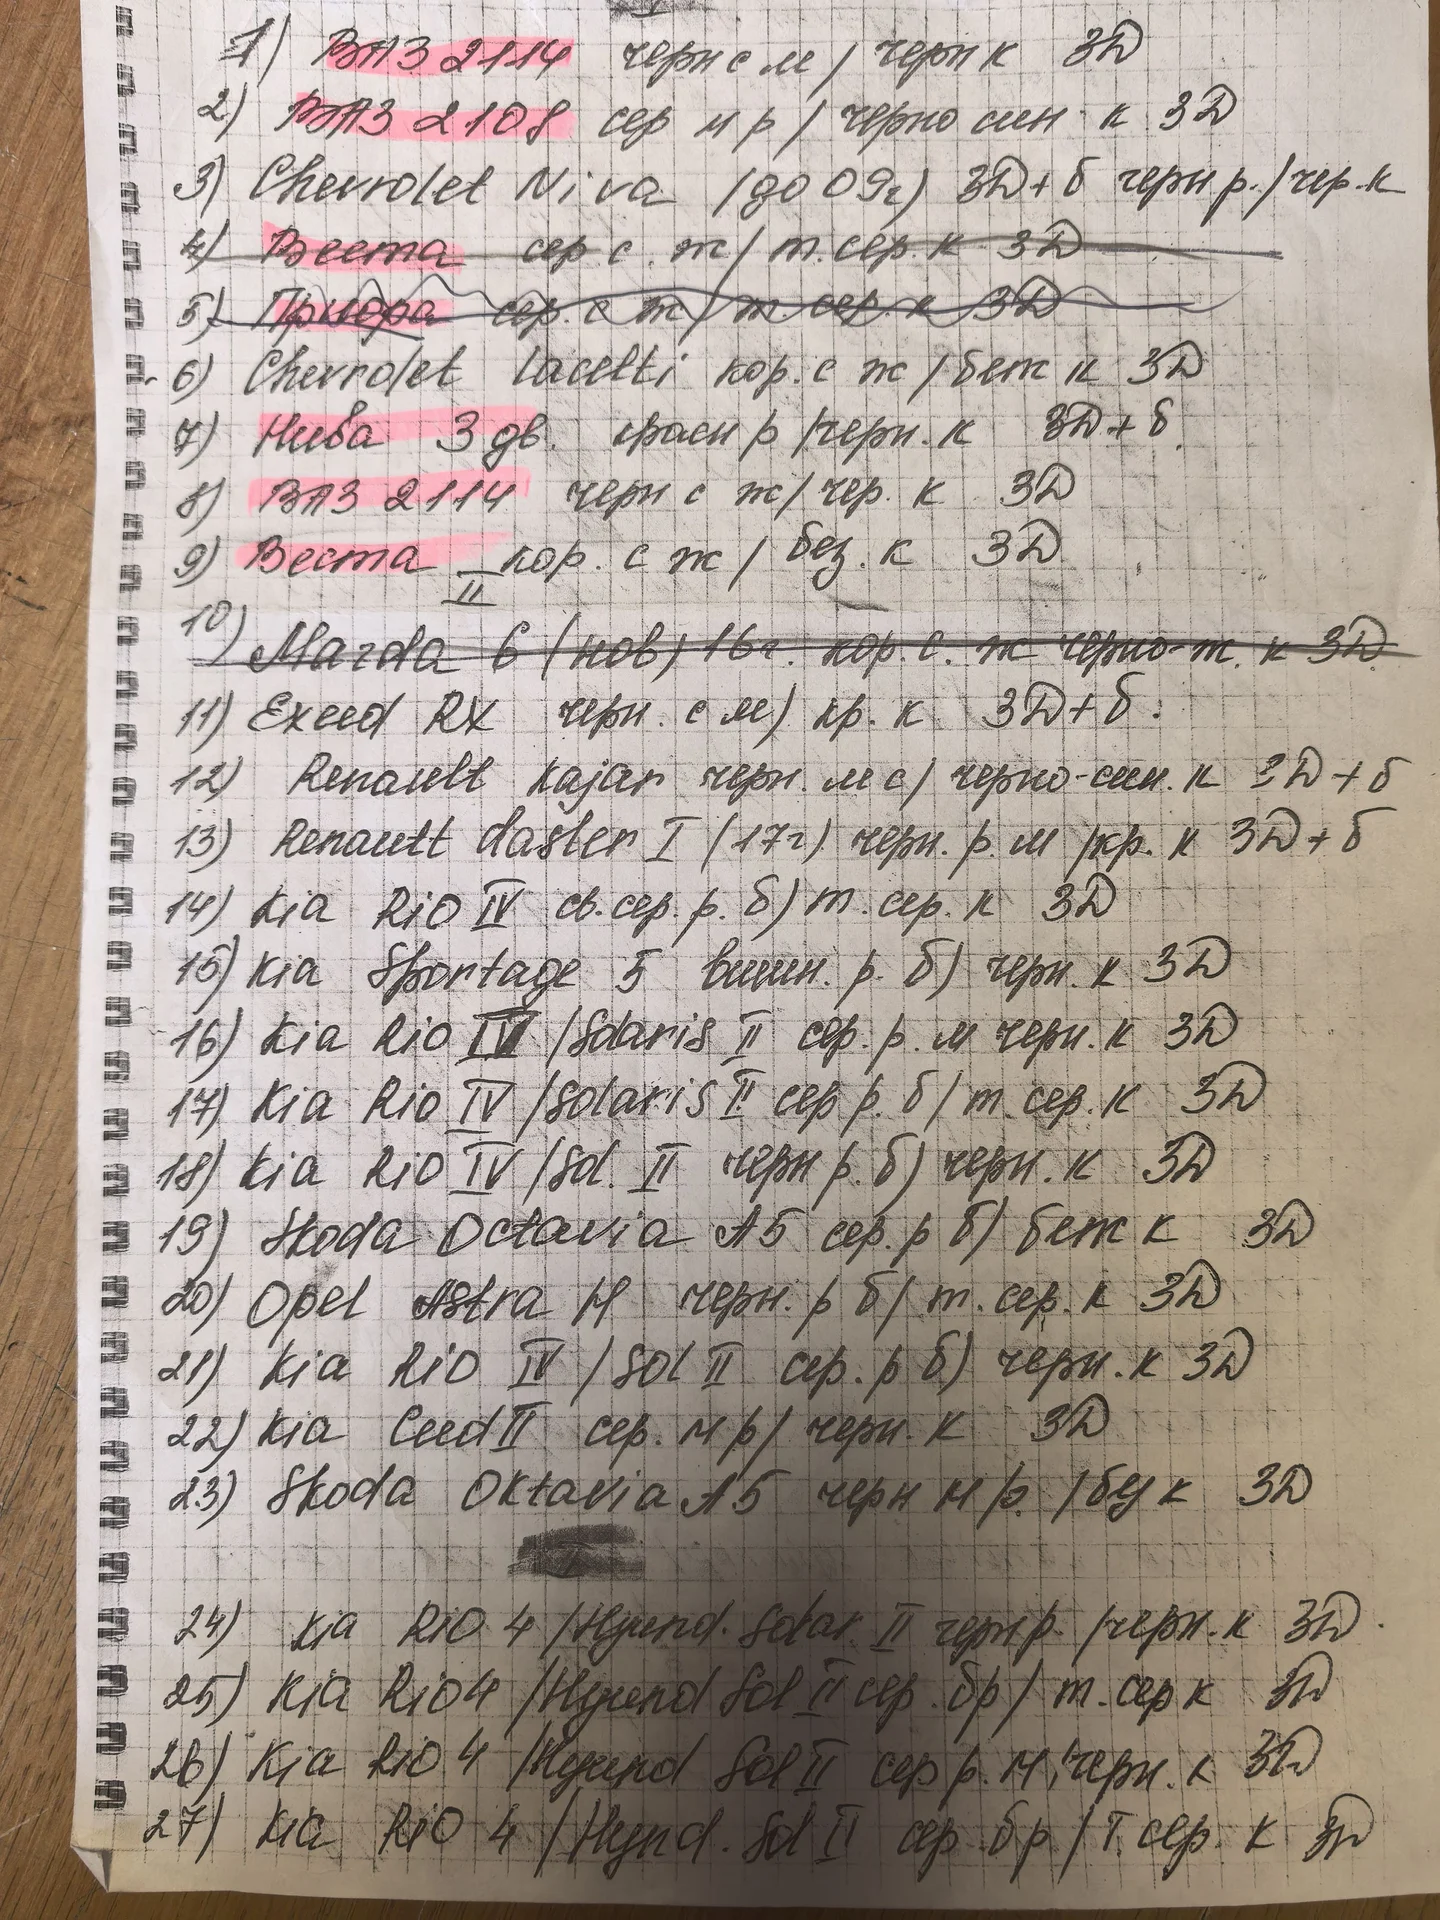 1) ВАЗ 2114 черн с м / черн к 3D
2) ВАЗ 2108 сер м р / черно син. к 3D
3) Chevrolet Niva (до 09г) 3D+б черн р. / чер. к
4) Веста сер с. ж / т. сер. к 3D
5) Приора сер. с ж / т сер. к 3D
6) Chevrolet lacetti кор. с ж / беж к 3D
7) Нива 3 дв. красн р / черн. к 3D+б
8) ВАЗ 2114 черн с ж / чер. к 3D
9) Веста кор. с ж / без. к 3D
II
10) Mazda 6 (нов) 16г. кор. с. ж черно-ж. к 3D
11) Exeed RX черн. с м) кр. к 3D+б.
12) Renault Kajar черн. м с / черно-син. к 3D+б
13) Renault daster I (17г) черн. р. м / кр. к 3D+б
14) Kia Rio IV св. сер. р. б) т. сер. к 3D
15) Kia Sportage 5 вишн. р. б) черн. к 3D
16) Kia Rio IV / Solaris II сер. р. м черн. к 3D
17) Kia Rio IV / Solaris II сер р. б / т. сер. к 3D
18) Kia Rio IV / Sol. II черн р. б) черн. к 3D
19) Skoda Octavia A5 сер. р б) беж к 3D
20) Opel Astra H черн. р б / т. сер. к 3D
21) Kia Rio IV / Sol II сер. р б) черн. к 3D
22) Kia Ceed II сер. м р / черн. к 3D
23) Skoda Oktavia A5 черн м р. / к 3D
24) Kia Rio 4 / Hyund. Solar. II черн р. / черн. к 3D.
25) Kia Rio 4 / Hyund Sol II сер. б р / т. сер к 3D
26) Kia Rio 4 / Hyund Sol II сер р. м, черн. к 3D
27) Kia Rio 4 / Hynd. Sol II сер б р / т. сер. к 3D